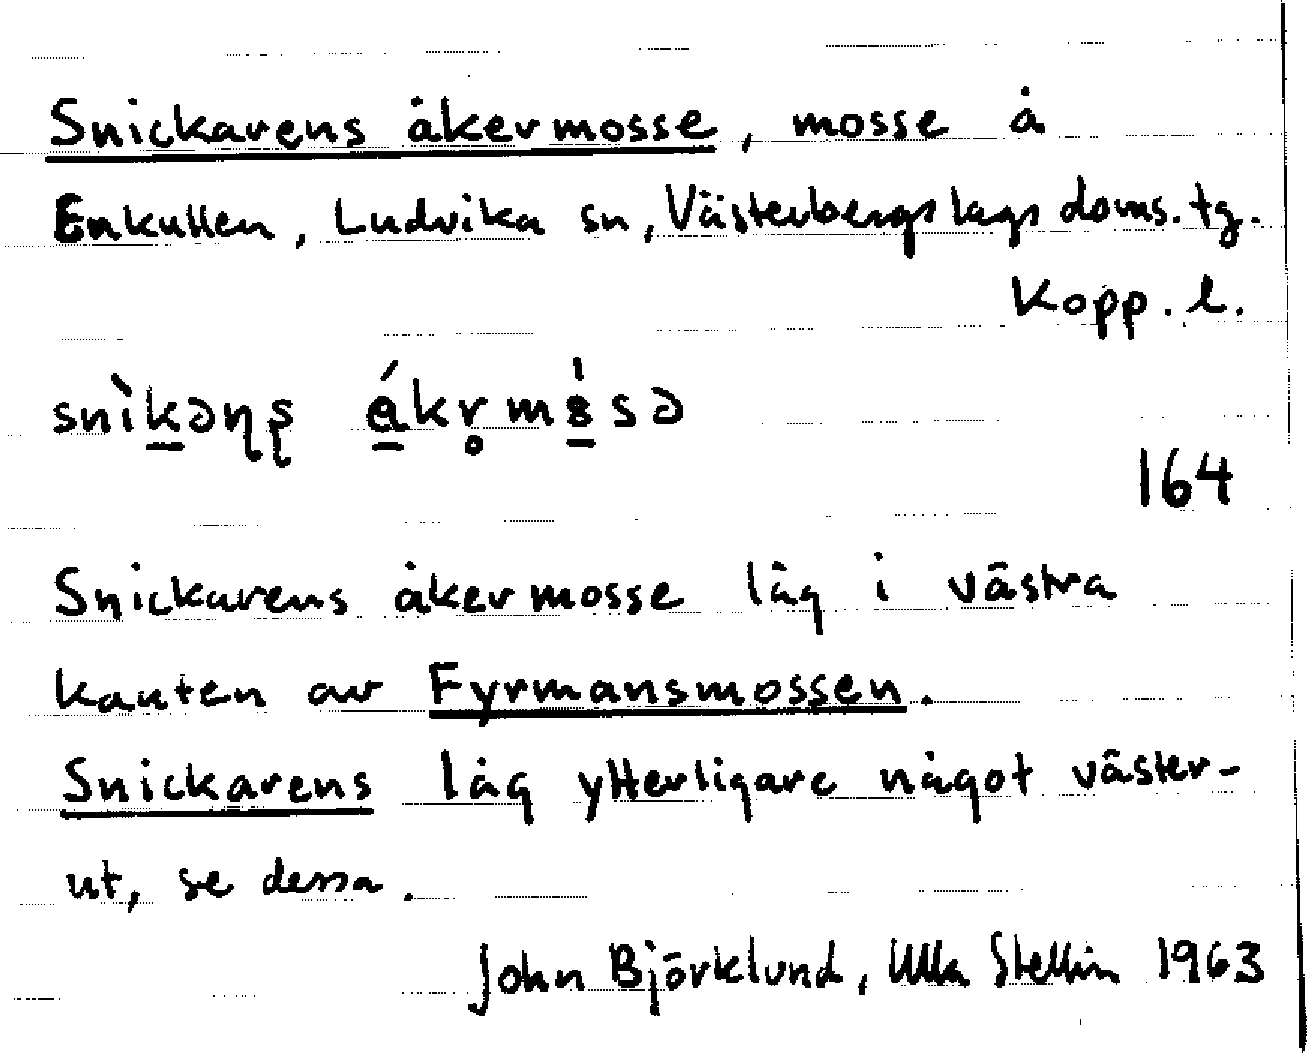 Snickarens åkermosse, mosse å
Enkullen, Ludvika sn, Västerbergslags doms. tg.
Kopp. l.
snìk̠əɳʂ á̠kr̥ms̠̍sə
164
Snickarens åkermosse låg i västra
kanten av Fyrmansmossen.
Snickarens låg ytterligare något väster-
ut, se dessa.
John Björklund, Ulla Stellin 1963